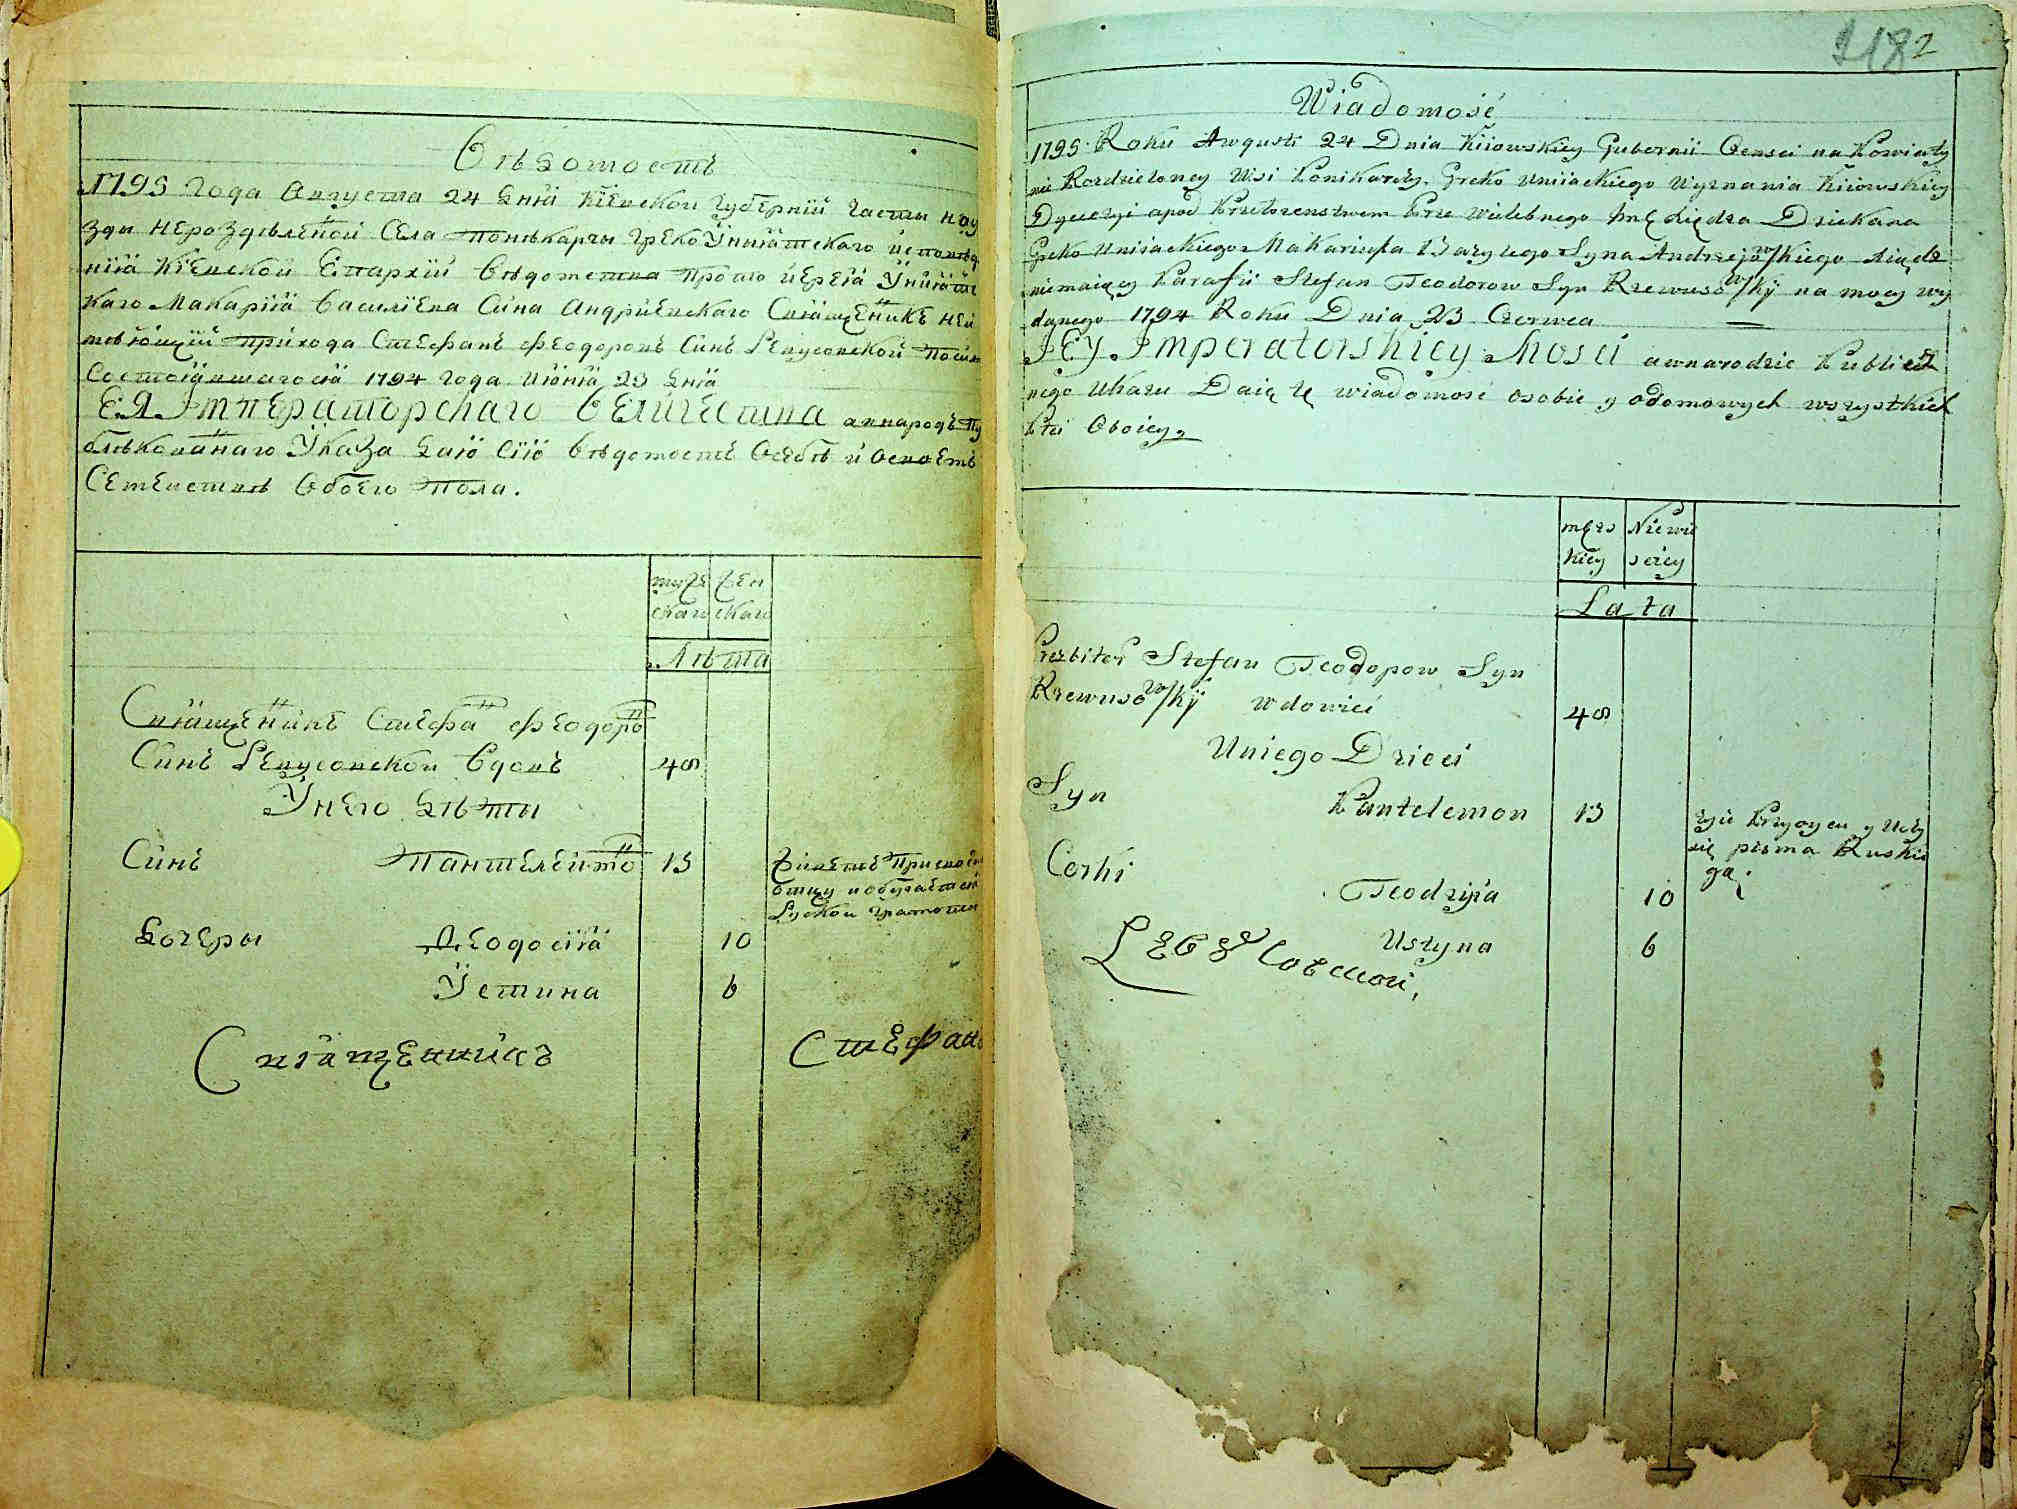 Вѣдомость
1795 Года Августа 24 дня Кіевской Губерніи Части на уѣ
зди нероздѣленой Села Понѣкарчи Греко Униятского исповѣда
нія Кіевской Епархіи Вѣдомства Протоіерея Униятс
каго Макарія Василіева Сина Андріевскаго Священикъ не и
мѣющій прихода Стефанъ Феодоровъ Синъ Ревусовской По
Состоявшагося 1794 Года Июня 23 дня
ЕЯ Императорскаго Величества внародъ Пу
блѣкованаго Указа даю сію Вѣдомость о Себѣ и о своемъ
Семействѣ Обоего Пола.
муже жен
скаго скаго
Лѣта
Священикъ Стефан Феодоров
Синъ Ревусовской Вдовъ 48
У него дѣти
Синъ Пантелеймон 13 Живетъ При своем
отцу и обучается
Руской грамоти
Дочери Феодосія 10
Устина 6
Священникъ Стефанъ
118 2
Wiadomość
1795 Roku Awgusti 24 Dnia Kiiowskiey Gubernii Czensci na Powiaty
nie Rozdzieloney Wsi Ponikarczy Greko Uniiackiego Wyznania Kiiowskiey
Dyecezyi apod Przełozenstwem Prze Wielebnego Imę Xiędza Dziekana
Greko Uniiackiego Makariusza Bazylego Syna Andrzejowskiego Xiądz
niemaiący Parafii Stefan Teodorow Syn Rzewusowskÿ na mocy wy
danego 1794 Roku Dnia 23 Czerwca
JEY Imperatorskiey Mosci a w narodzie Publicz
nego Ukazu Daię tę wiadomosć osobie y odomowych wszystkich
Płci Oboiey
męzs Niewie
kiey sciey
Lata
Prezbiter Stefan Teodopow Syn
Rzewusowskÿ wdowiec 48
Uniego Dzieci
Syn Pantelemon 13 zyie Przyoycu y Uczy
się pisma Ruskie
go
Corki Teodzyia 10
Ustyna 6
Ревусовской,